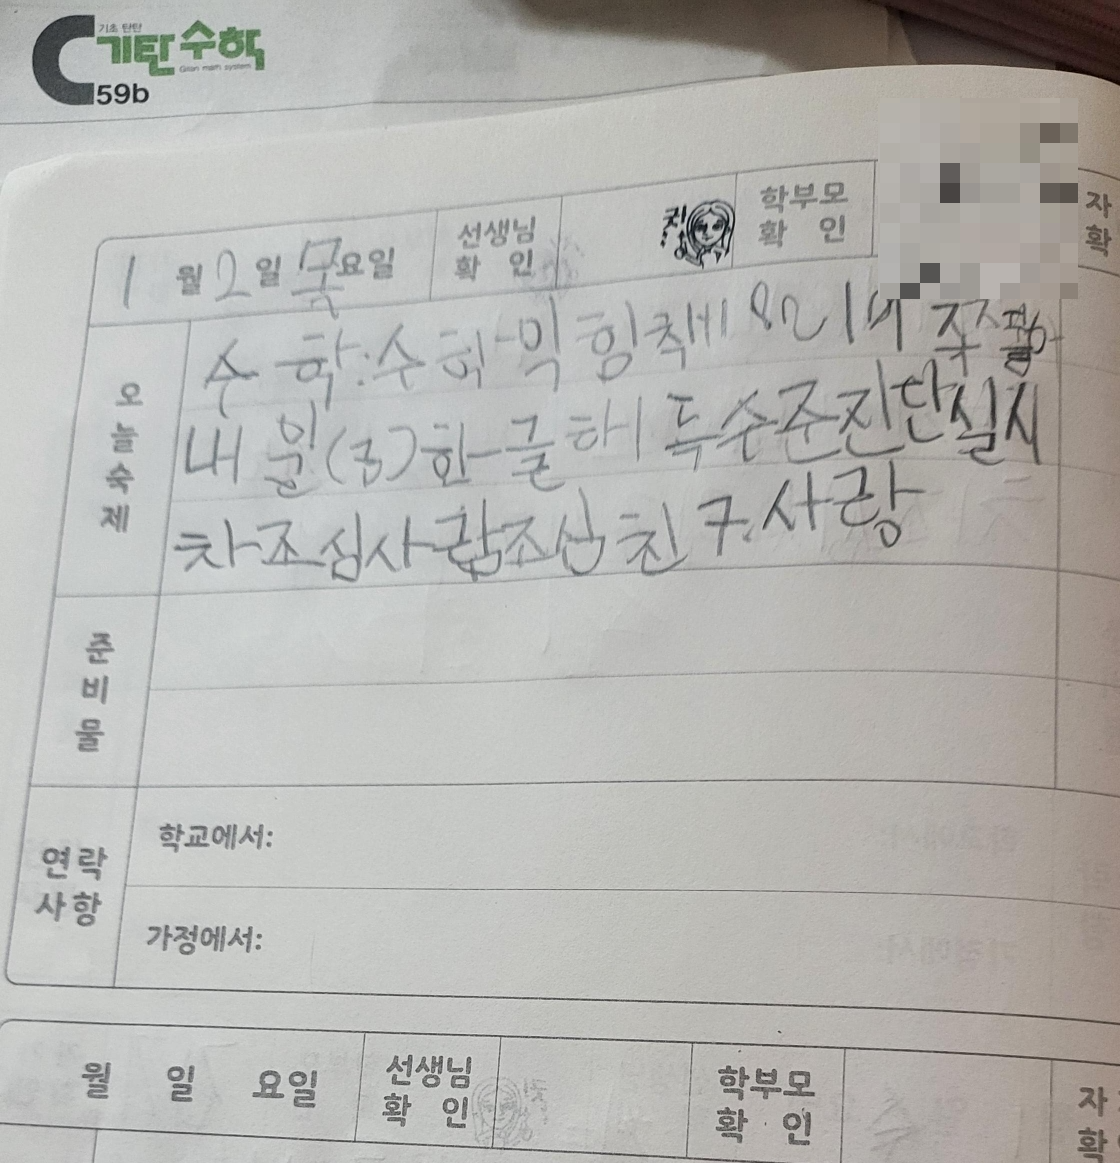 기초 탄탄
기탄수학
Gitan math system
C
59b
1월 2일 목요일
선생님 확인
굿!
학부모 확인
자
확
오늘숙제
수학:수학익힘책
내일(금)한글해득수준진단실시
차조심사람조심친구.사랑
준비물
연락사항
학교에서:
가정에서:
월 일 요일
선생님 확인
학부모 확인
자
확